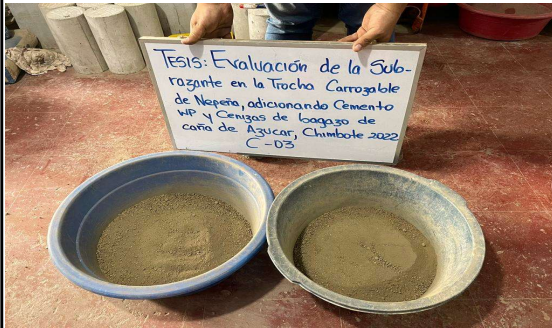 TESIS: Evaluación de la Sub-
razante en la Trocha Carrozable
de Nepeña, adicionando Cemento
WP y Cenizas de bagazo de
caña de Azucar, Chimbote 2022
C-03